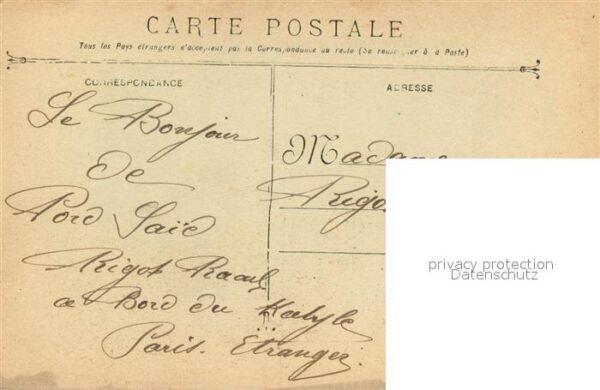 CARTE POSTALE
Tous les Pays étrangers n'acceptent pas la Correspondance au recto (Se renseigner à la Poste)
CORRESPONDANCE
ADRESSE
Le Bonjour
de
Pord Saïd
Rigot Raoul
a Bord du Kabyle
Paris. Etranger.
Madame
Rigot
privacy protection
Datenschutz